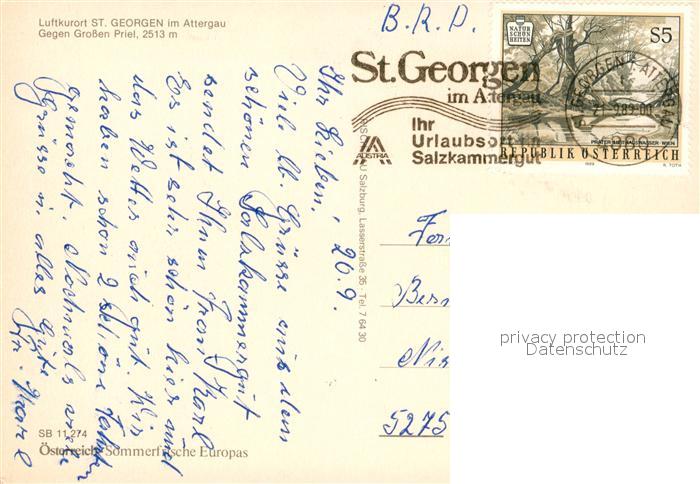 Luftkurort ST. GEORGEN im Attergau
Gegen Großen Priel, 2513 m
B.R.D.
NATUR
SCHÖN
HEITEN
S5
St.Georgen
im Attergau
Ihr
Urlaubsort im
Salzkammergut
AUSTRIA
ST. GEORGEN I. ATTERGAU
PRATER-
WIEN
REPUBLIK ÖSTERREICH
1989
A. TOTH
Salzburg, Lasserstraße 35 · Tel. 7 64 30
Ihr Lieben, 20.9.
Viele ll. Grüsse aus dem
schönen Salzkammergut
sendet Ihnen Frau Karl
Es ist sehr schön hier und
das Wetter auch gut. Wir
haben schon 2 schöne Fahrten
gemacht. Nochmals viele
Grüsse u. alles Gute
Fr. Karl
5275
privacy protection
Datenschutz
SB 11 274
Österreich Sommerfrische Europas